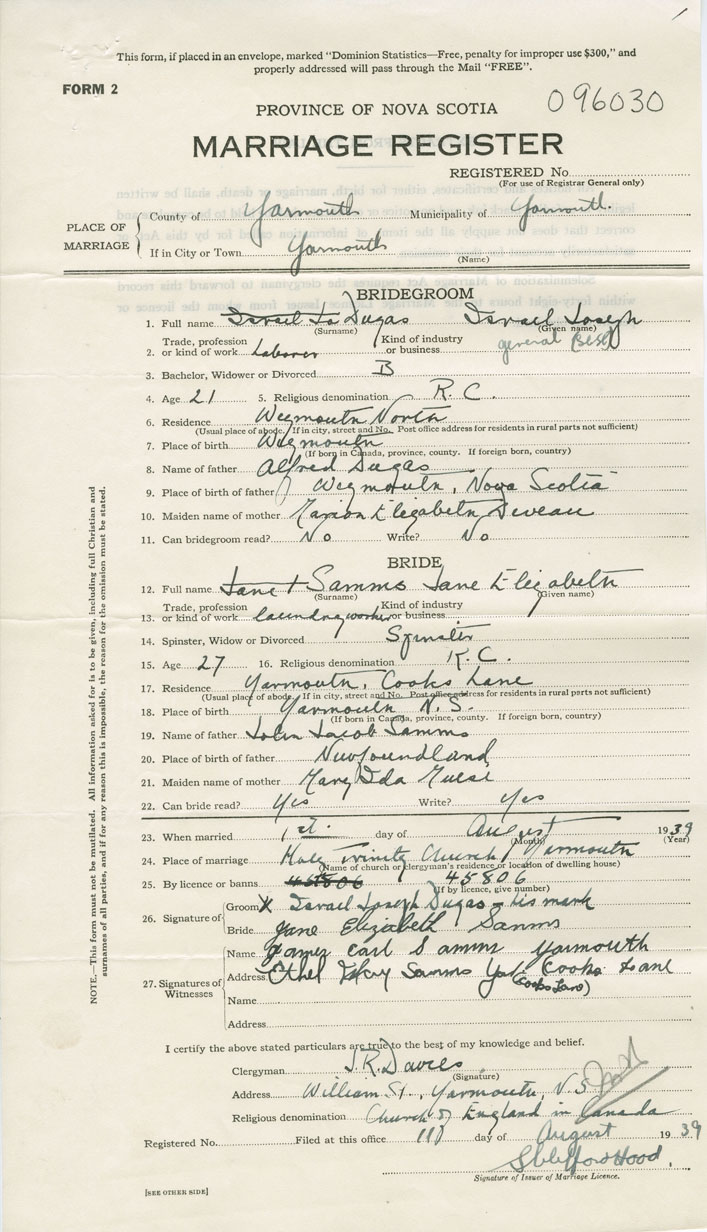 This form, if placed in an envelope, marked "Dominion Statistics—Free, penalty for improper use $300," and
properly addressed will pass through the Mail "FREE".
FORM 2
096030
PROVINCE OF NOVA SCOTIA
MARRIAGE REGISTER
REGISTERED No.
(For use of Registrar General only)
PLACE OF MARRIAGE
County of Yarmouth Municipality of Yarmouth.
If in City or Town Yarmouth
(Name)
BRIDEGROOM
1. Full name Israel Jo Dugas Israel Joseph
(Surname) (Given name)
2. Trade, profession or kind of work Laborer Kind of industry or business general
3. Bachelor, Widower or Divorced B
4. Age 21 5. Religious denomination R. C.
6. Residence Weymouth North
(Usual place of abode. If in city, street and No. Post office address for residents in rural parts not sufficient)
7. Place of birth Weymouth
(If born in Canada, province, county. If foreign born, country)
8. Name of father Alfred Dugas
9. Place of birth of father Weymouth, Nova Scotia
10. Maiden name of mother Marion Elizabeth Deveau
11. Can bridegroom read? No Write? No
BRIDE
12. Full name Jane E Samms Jane Elizabeth
(Surname) (Given name)
13. Trade, profession or kind of work laundry worker Kind of industry or business
14. Spinster, Widow or Divorced Spinster
15. Age 27 16. Religious denomination R. C.
17. Residence Yarmouth, Cooks Lane
(Usual place of abode. If in city, street and No. Post office address for residents in rural parts not sufficient)
18. Place of birth Yarmouth N. S.
(If born in Canada, province, county. If foreign born, country)
19. Name of father John Jacob Samms
20. Place of birth of father Newfoundland
21. Maiden name of mother Mary Ida Muise
22. Can bride read? Yes Write? Yes
23. When married 1st. day of August 1939
(Month) (Year)
24. Place of marriage Holy Trinity Church Yarmouth
(Name of church or clergyman's residence or location of dwelling house)
25. By licence or banns 45806 45806
(If by licence, give number)
26. Signature of
Groom X Israel Joseph Dugas his mark
Bride Jane Elizabeth Samms
27. Signatures of Witnesses
Name James Earl Samms Yarmouth
Address Ethel May Samms Yar Cooks Lane
(Cooks Lane)
Name
Address
NOTE.—This form must not be mutilated. All information asked for is to be given, including full Christian and
surnames of all parties, and if for any reason this is impossible, the reason for the omission must be stated.
I certify the above stated particulars are true to the best of my knowledge and belief.
Clergyman J. R. Davies
(Signature)
Address William St., Yarmouth, N.S.
Religious denomination Church of England in Canada
Registered No. Filed at this office 11 day of August 1939
Hood
Signature of Issuer of Marriage Licence.
[SEE OTHER SIDE]